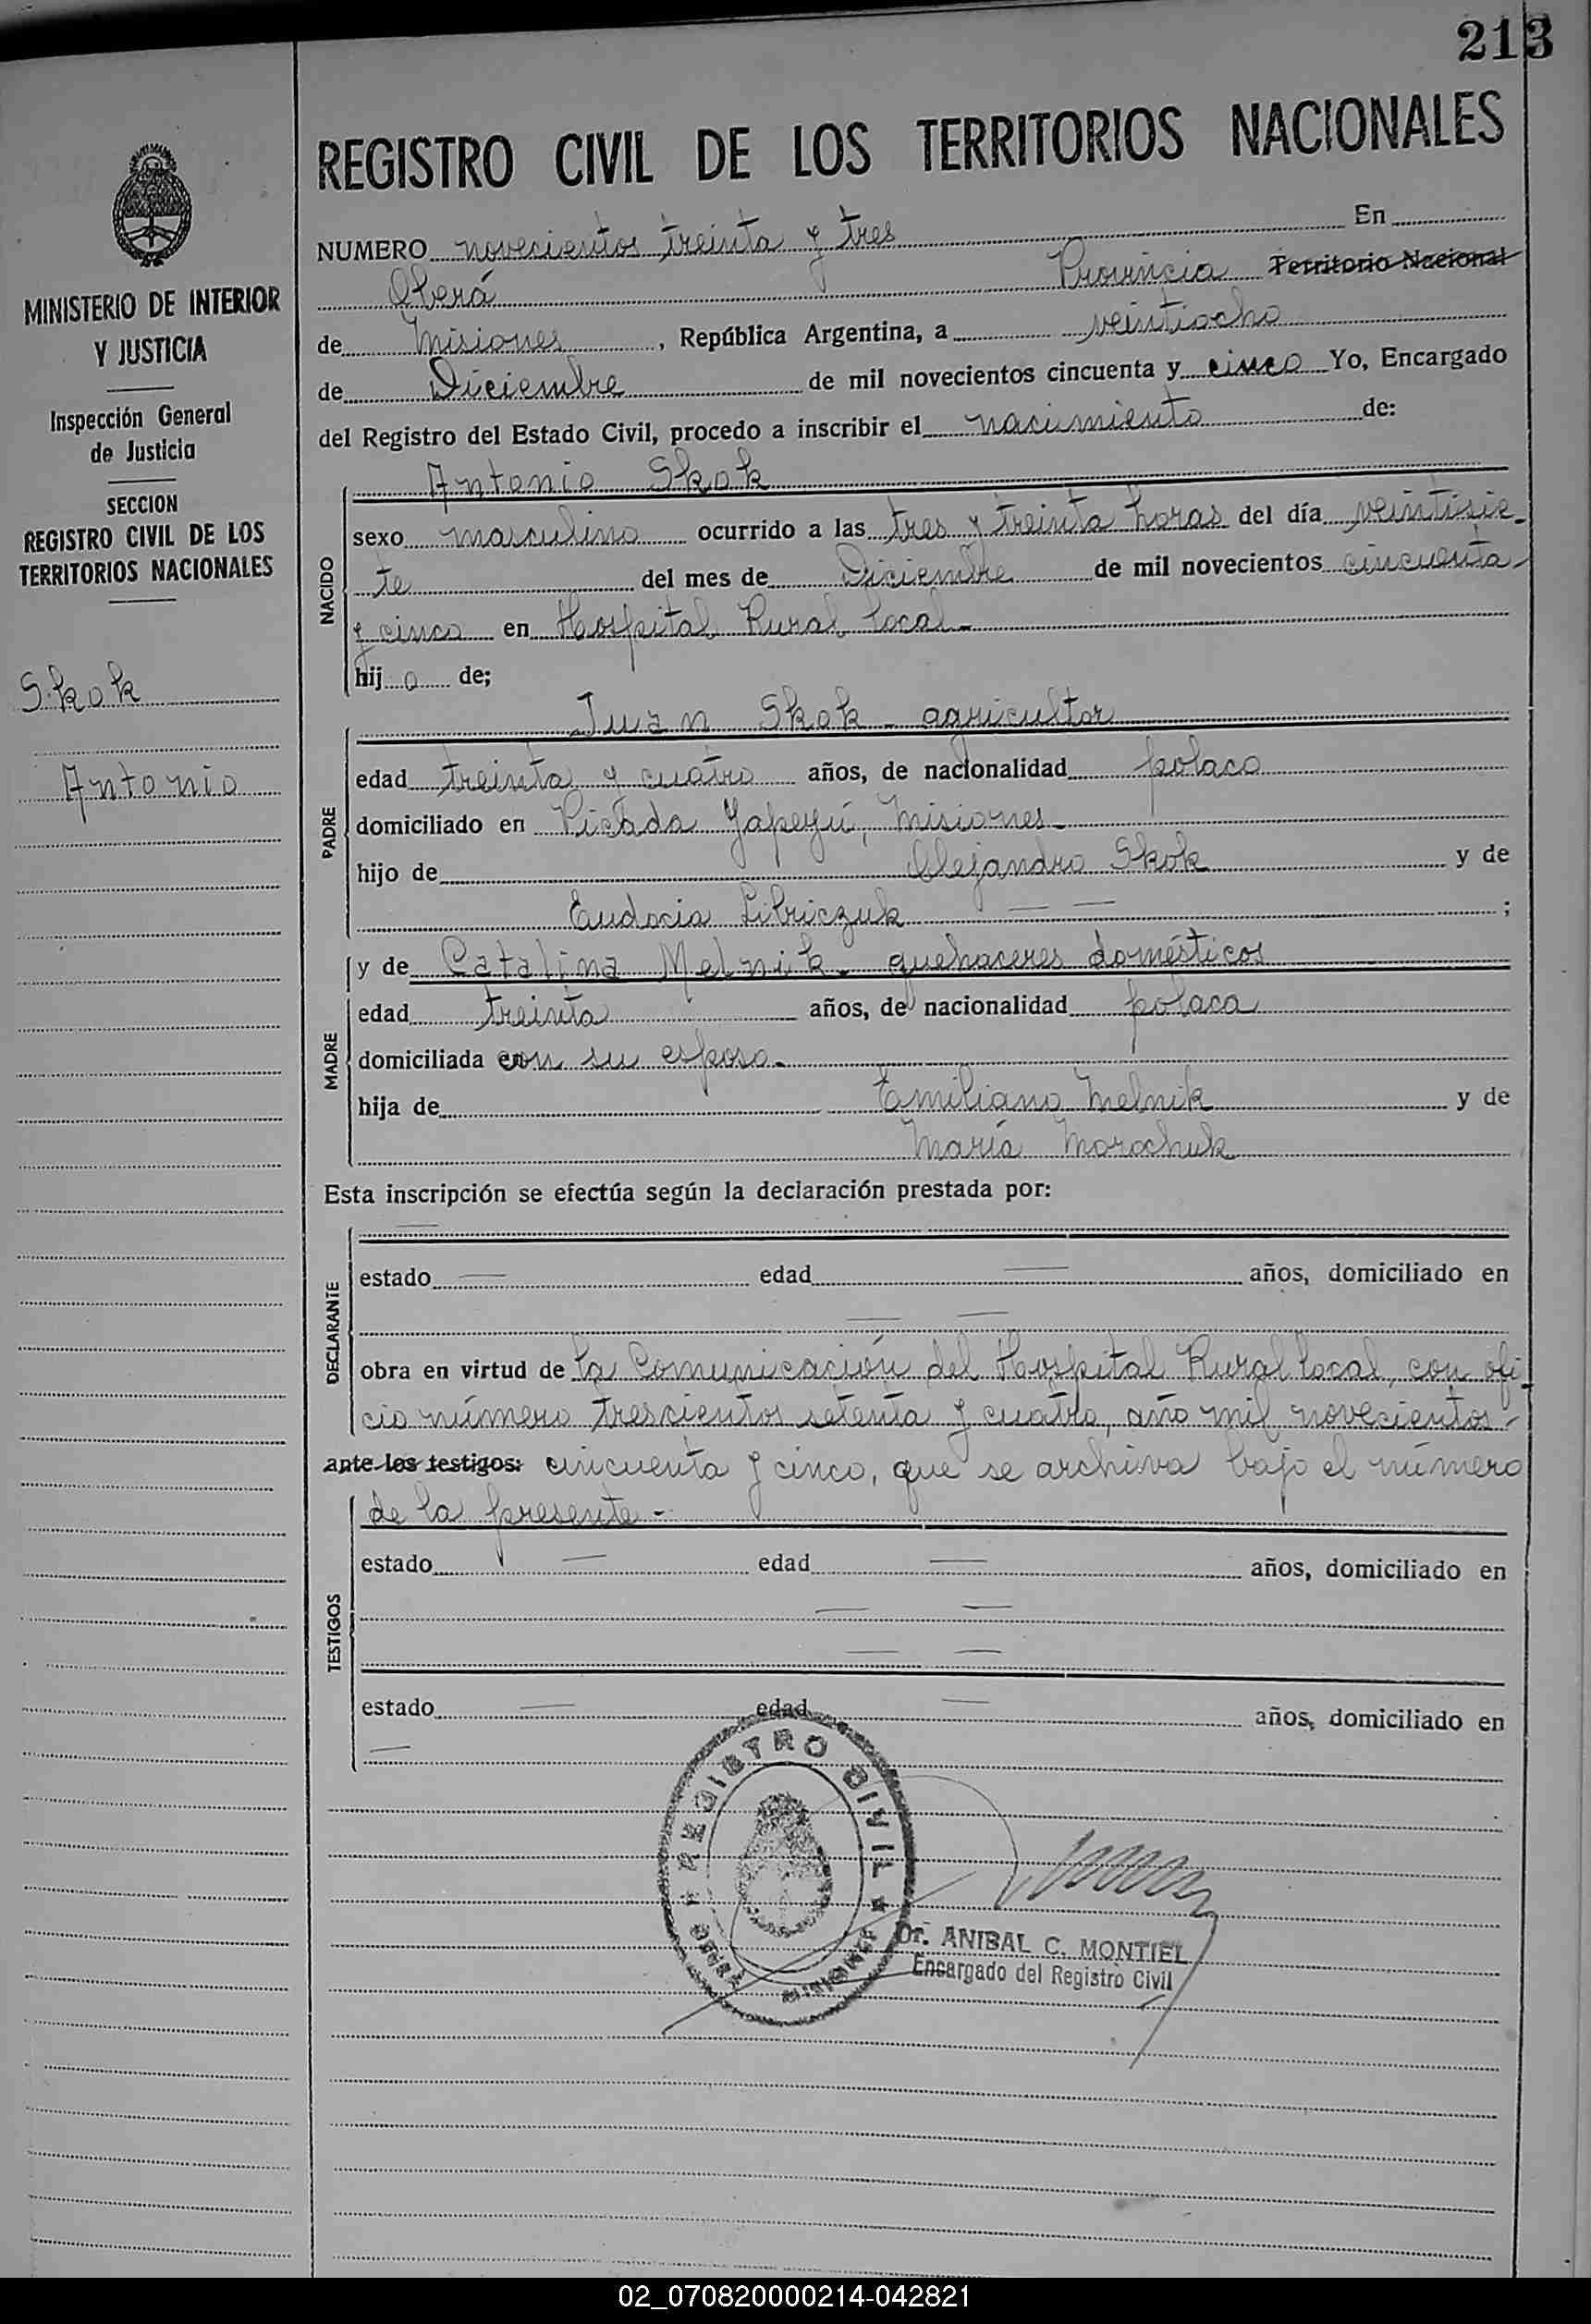 213
REGISTRO CIVIL DE LOS TERRITORIOS NACIONALES
MINISTERIO DE INTERIOR
Y JUSTICIA
Inspección General
de Justicia
SECCION
REGISTRO CIVIL DE LOS
TERRITORIOS NACIONALES
Skok
Antonio
NUMERO novecientos treinta y tres En
Oberá Provincia Territorio Nacional
de Misiones, República Argentina, a veintiocho
de Diciembre de mil novecientos cincuenta y cinco Yo, Encargado
del Registro del Estado Civil, procedo a inscribir el nacimiento de:
NACIDO
Antonio Skok
sexo masculino ocurrido a las tres y treinta horas del día veintisie-
te del mes de Diciembre de mil novecientos cincuenta
y cinco en Hospital Rural local-
hijo de;
PADRE
Juan Skok - agricultor
edad treinta y cuatro años, de nacionalidad polaca
domiciliado en Picada Yapeyú, Misiones-
hijo de Alejandro Skok y de
Eudocia Libriczuk — — ;
MADRE
y de Catalina Melnik - quehaceres domésticos
edad treinta años, de nacionalidad polaca
domiciliada con su esposo-
hija de Emiliano Melnik y de
María Morochuk
Esta inscripción se efectúa según la declaración prestada por:
DECLARANTE
—
estado — edad — años, domiciliado en
— —
obra en virtud de la Comunicación del Hospital Rural local, con ofi-
cio número trescientos setenta y cuatro, año mil novecientos-
ante los testigos: cincuenta y cinco, que se archiva bajo el número
de la presente-
TESTIGOS
estado — edad — años, domiciliado en
— —
— —
estado — edad — años, domiciliado en
—
REGISTRO CIVIL
OBERA
MISIONES
Dr. ANIBAL C. MONTIEL
Encargado del Registro Civil
02_070820000214-042821